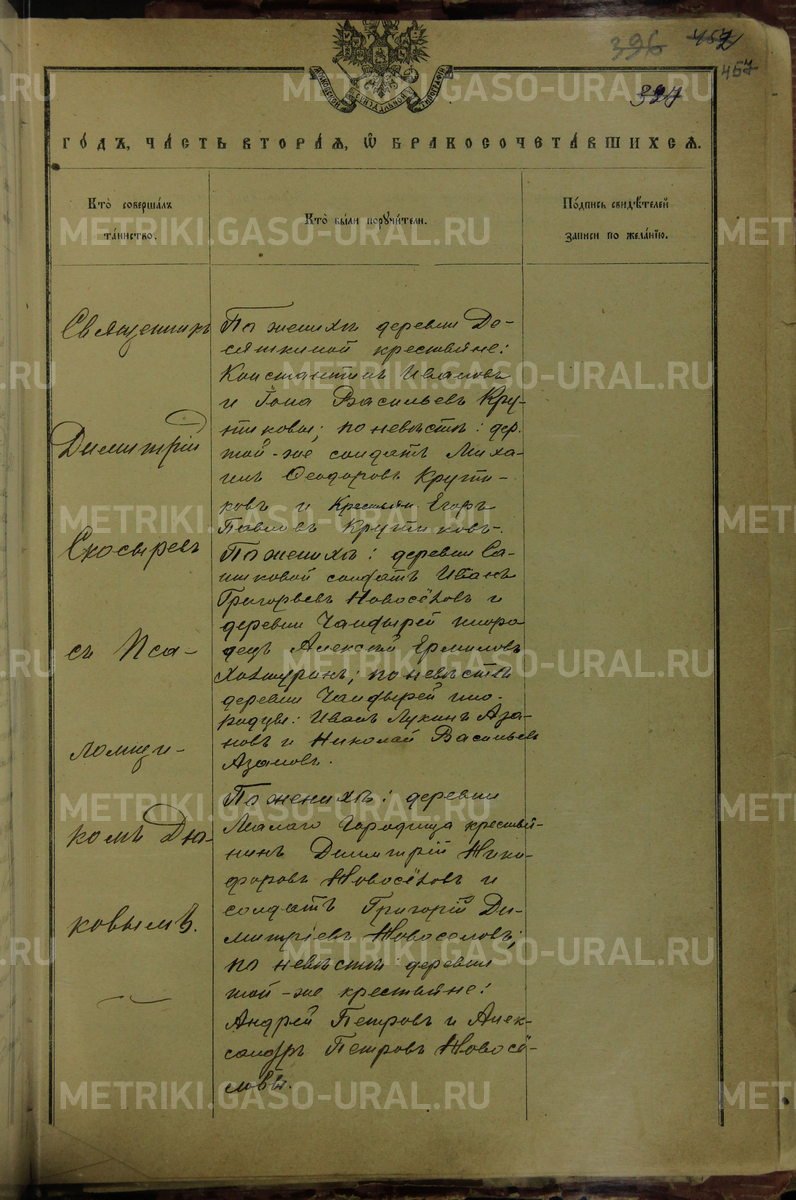 396 457
457
327
МОСКОВСКОЙ СѴНОДАЛЬНОЙ ТИПОГРАФІИ
ГОДЪ, ЧАСТЬ ВТОРАЯ, Ѡ БРАКОСОЧЕТАВШИХСЯ.
Кто совершалъ
таинство.
Кто были поручители.
Подпись свидѣтелей
записи по желанію.
Священникъ
Димитрій
Скосыревъ
съ Пса-
ломщи-
комъ Дю-
ковымъ.
По женихѣ деревни До-
сяткиной крестьяне:
Константинъ Ивановъ
и Іона Васильевъ Кру-
тиковы; по невѣстѣ: дер.
той-же солдатъ Миха-
илъ Ѳеодоровъ Крути-
ковъ и крестьян. Егоръ
Павловъ Крутиковъ.
По женихѣ: деревни Са-
тиковой солдатъ Иванъ
Григорьевъ Новосёловъ и
деревни Чандырей иноро-
децъ Алексѣй Ермиловъ
по невѣстѣ
деревни Чандырей ино-
родцы: Иванъ Лукинъ Аза-
новъ и Николай Васильевъ
Азановъ.
По женихѣ: деревни
Малаго Городища крестья-
нинъ Димитрій Ники-
форовъ Новосёловъ и
солдатъ Григорій Ди-
митріевъ Новоселовъ;
по невѣстѣ: деревни
той-же крестьяне:
Андрей Петровъ и Алек-
сандръ Петровъ Новосё-
ловы.
METRIKI.GASO-URAL.RU